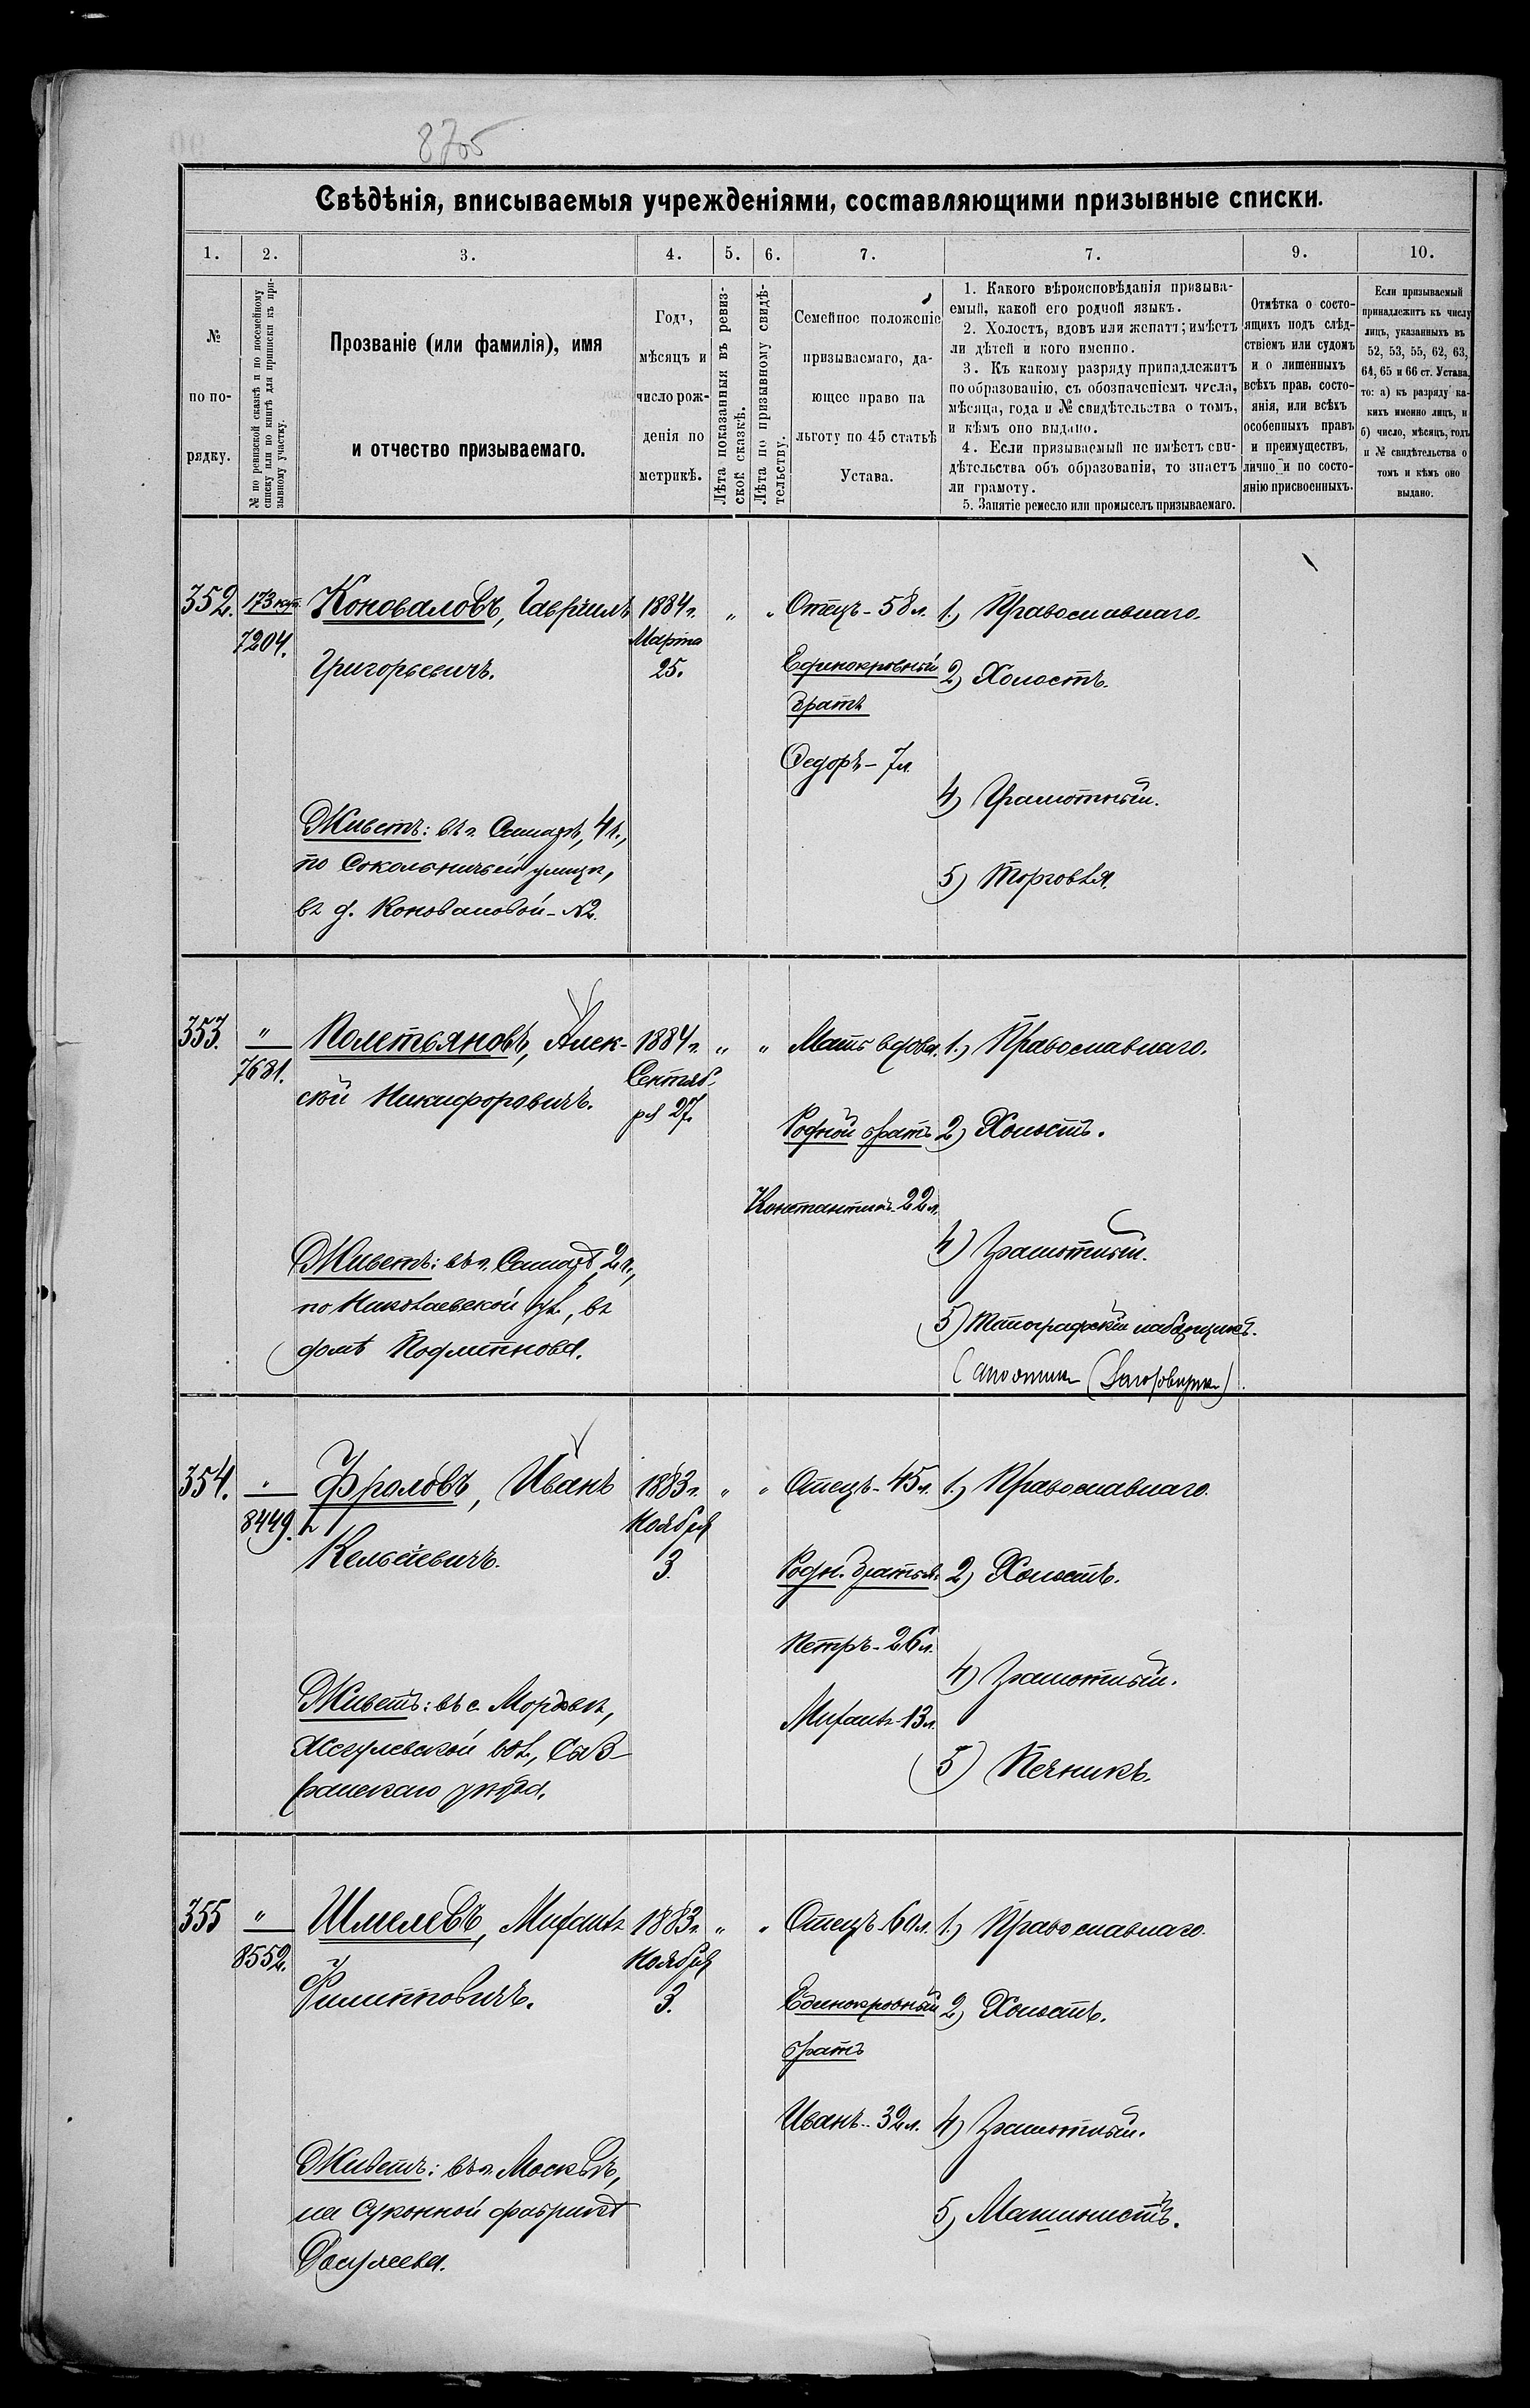 8705
Свѣдѣнія, вписываемыя учрежденіями, составляющими призывные списки.
1. 2. 3. 4. 5. 6. 7. 7. 9. 10.
№
по по-
рядку.
№ по ревизской сказкѣ и по посемейному
списку или по книгѣ для приписки къ при-
зывному участку.
Прозваніе (или фамилія), имя
и отчество призываемаго.
Годъ,
мѣсяцъ и
число рож-
денія по
метрикѣ.
Лѣта показанныя въ ревиз-
ской сказкѣ.
Лѣта по призывному свидѣ-
тельству.
Семейное положеніе
призываемаго, да-
ющее право на
льготу по 45 статьѣ
Устава.
1. Какого вѣроисповѣданія призыва-
емый, какой его родной языкъ.
2. Холостъ, вдовъ или женатъ; имѣетъ
ли дѣтей и кого именно.
3. Къ какому разряду принадлежитъ
по образованію, съ обозначеніемъ числа,
мѣсяца, года и № свидѣтельства о томъ,
и кѣмъ оно выдано.
4. Если призываемый не имѣетъ сви-
дѣтельства объ образованіи, то знаетъ
ли грамоту.
5. Занятіе ремесло или промыселъ призываемаго.
Отмѣтка о состо-
ящихъ подъ слѣд-
ствіемъ или судомъ
и о лишенныхъ
всѣхъ прав. состо-
янія, или всѣхъ
особенныхъ правъ
и преимуществъ,
лично и по состо-
янію присвоенныхъ.
Если призываемый
принадлежитъ къ числу
лицъ, указанныхъ въ
52, 53, 55, 62, 63,
64, 65 и 66 ст. Устава,
то: а) къ разряду ка-
кихъ именно лицъ, и
б) число, мѣсяцъ, годъ
и № свидѣтельства о
томъ и кѣмъ оно
выдано.
352. 173 куп. Коноваловъ, Гавріилъ 1884 г. " " Отецъ - 58 л. 1) Православнаго.
7204. Григорьевичъ. Марта 25. Единокровный 2) Холостъ.
братъ
Федоръ - 7 л.
4) Грамотный.
Живетъ: въ г. Самарѣ, 4 ч.,
по Сокольничьей улицѣ, 5) Торговля.
въ д. Коноваловой - №2.
353. " Полетьяновъ, Алек- 1884 г. " " Мать вдова. 1) Православнаго.
7681. сѣй Никифоровичъ. Сентяб-
ря 27. Родной братъ 2) Холостъ.
Константинъ - 22 л.
4) Грамотный.
Живетъ: въ г. Самарѣ, 2 ч.,
по Николаевской ул., въ 5) Типографскій наборщикъ.
домѣ Подлипнова.
354. " Фроловъ, Иванъ 1883 г. " " Отецъ - 45 л. 1) Православнаго.
8449. Кельсіевичъ. Ноября
3. Родн. братья: 2) Холостъ.
Петръ - 26 л.
4) Грамотный.
Живетъ: въ с. Мордовѣ, Михаилъ - 13 л.
Жегулевской вол., Сыз- 5) Печникъ.
ранскаго уѣзда.
355 " Шмелевъ, Михаилъ 1883 г. " " Отецъ 60 л. 1) Православнаго.
8552. Филипповичъ. Ноября
3. Единокровный 2) Холостъ.
братъ
Иванъ - 32 л. 4) Грамотный.
Живетъ: въ г. Москвѣ,
на суконной фабрикѣ 5) Машинистъ.